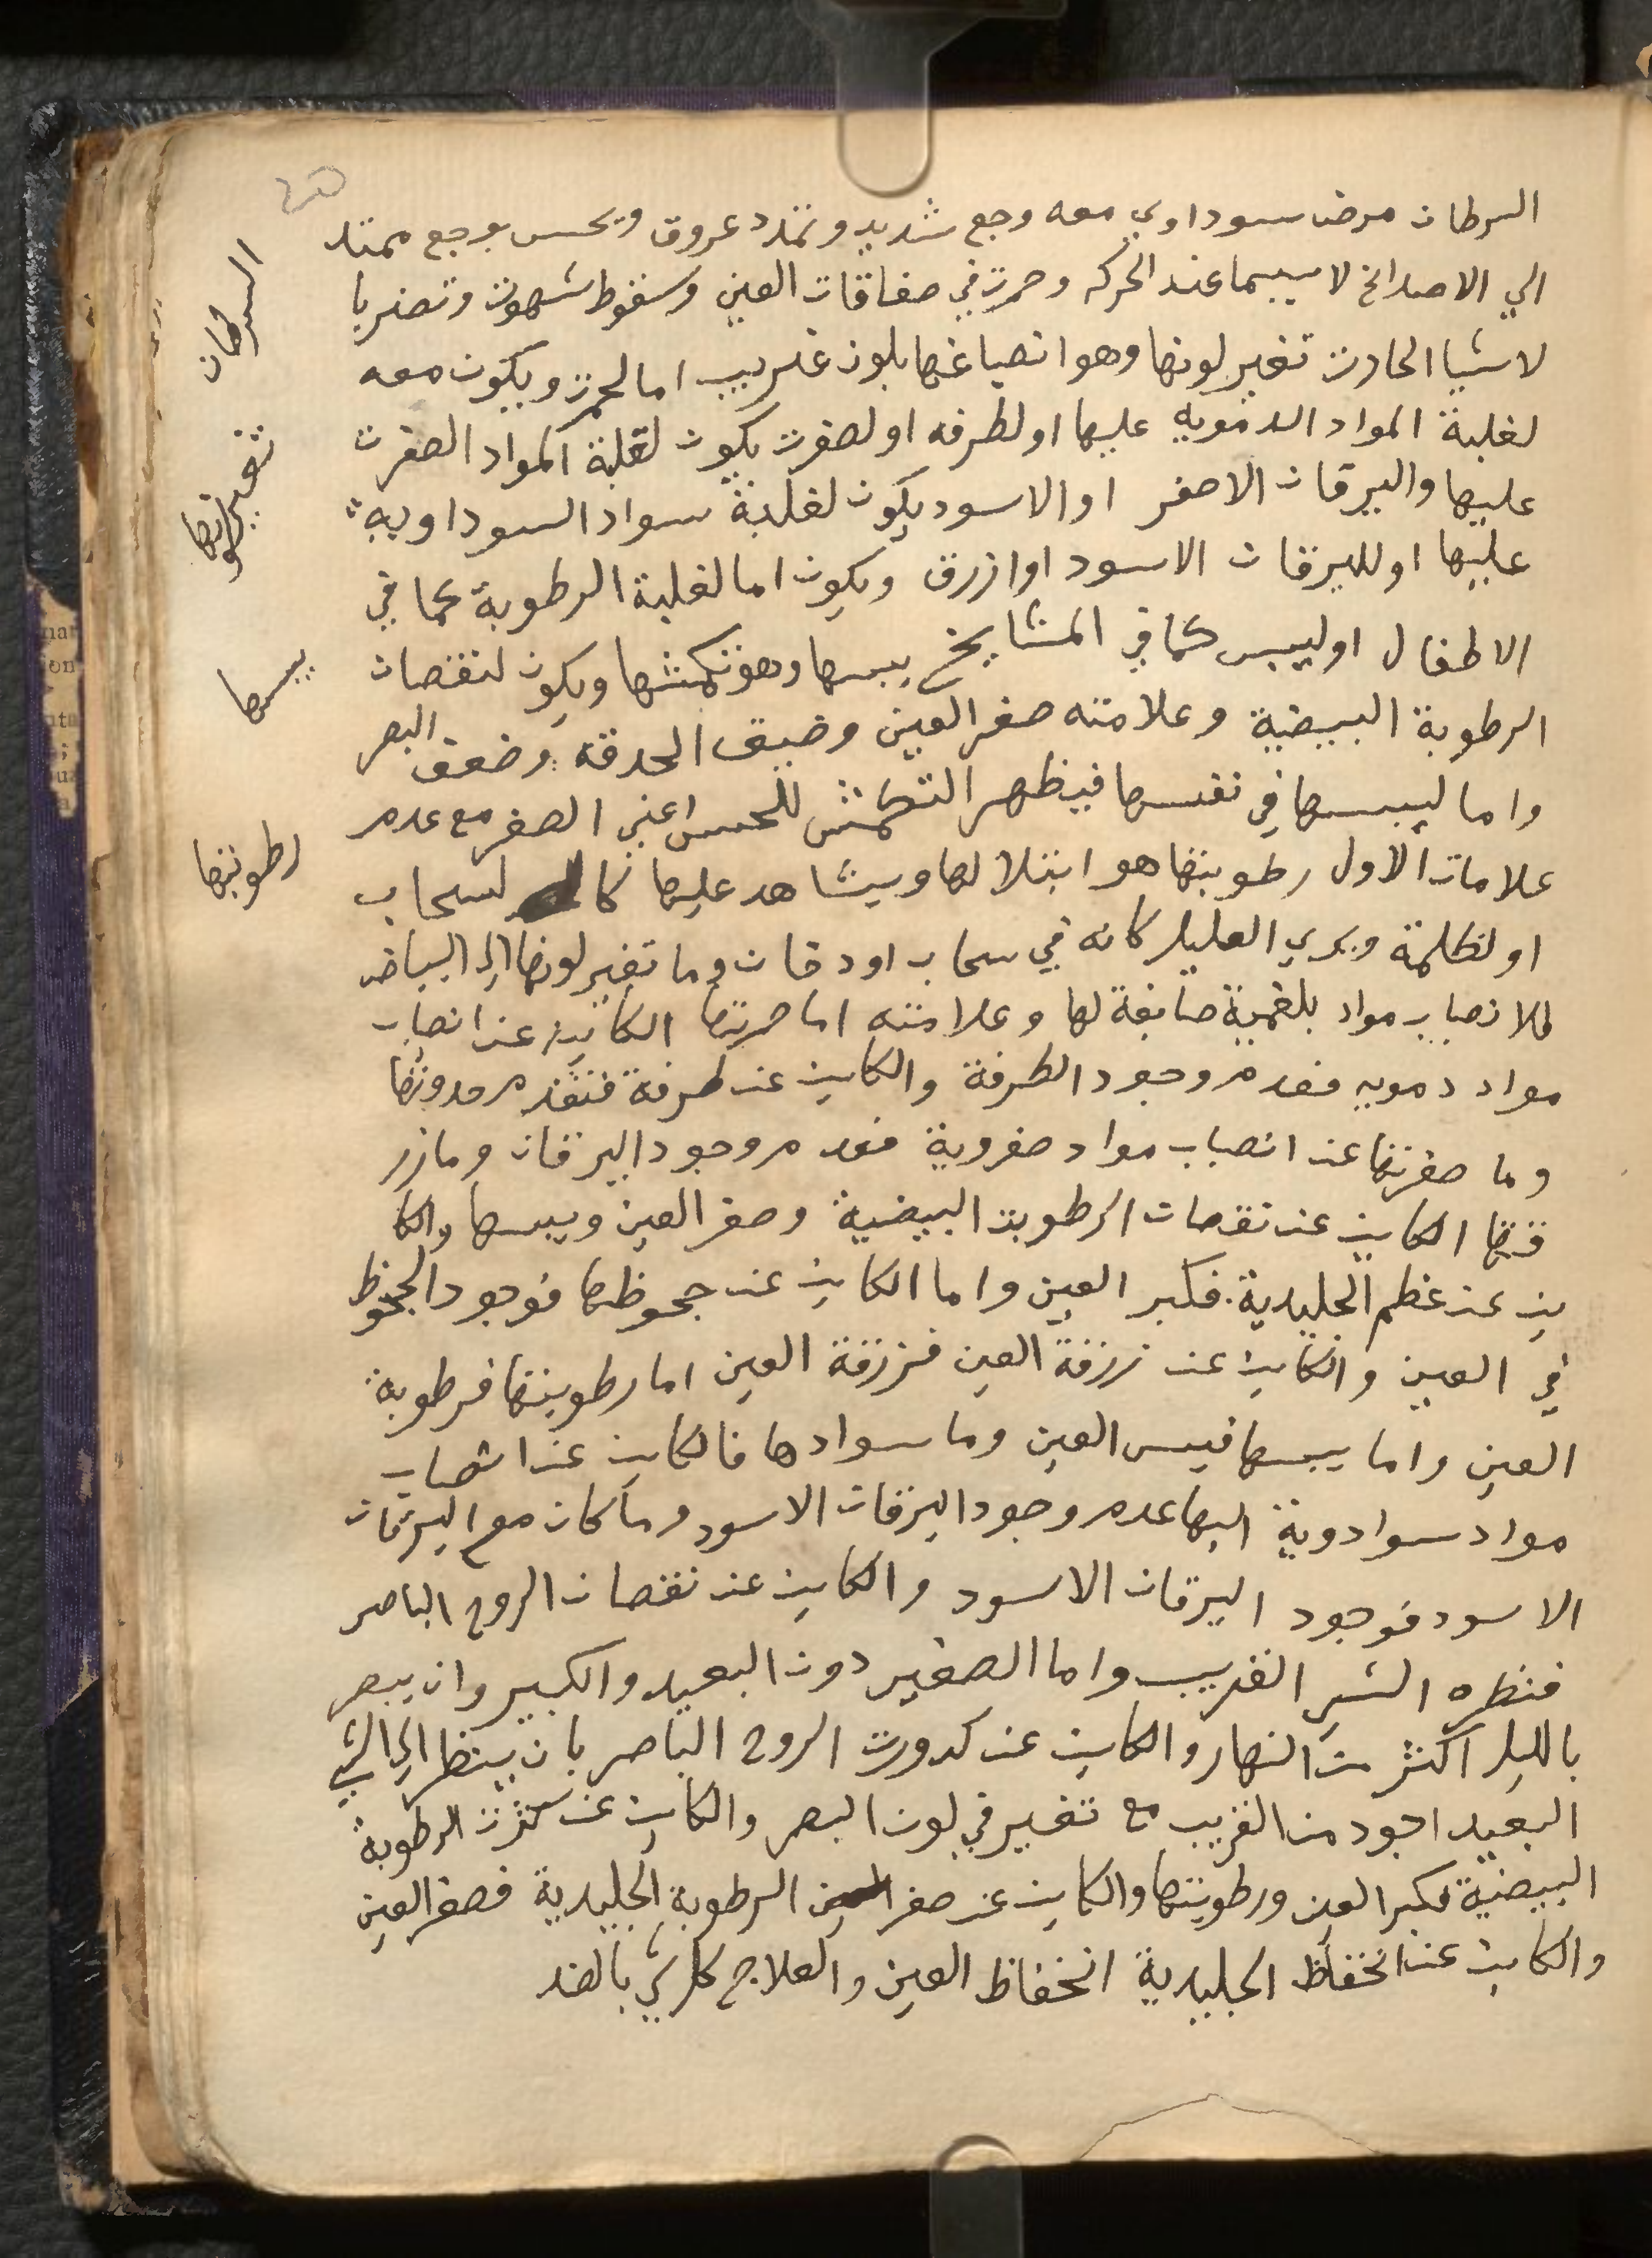 السرطان مرض سوداوي معه وجع شديد وتمدد عروق ويحس بوجع ممتد
الي الاصداغ لا سيما عند الحركه وحمرت في صفاقات العين وسقوط شهوت وتضر با
لاشيا الحادت تغير لونها وهو انصباغها بلون غريب اما لحمرت ويكون معه
لغلبة المواد الدمويه عليها او لطرفه او لصفرت يكون لغلبة المواد الصفرت
عليها واليرقان الاصفر او الاسود يكون لغلبة سواد السوداويه
عليها او لليرقان الاسود او ازرق ويكون اما لغلبة الرطوبة كما في
الاطفال او ليبس كما في المشايخ يبسها وهو تكمشها ويكون لنقصان
الرطوبة البيضية وعلامته صغر العين وضيق الحدقه وضعف البصر
واما ليبسها في نفسها فيظهر التكمش للحس اعني الصغر مع عدم
علامات الاول رطوبتها هو ابتلالها ويشاهد عليها كا لسحاب
او لظلمة ويري العليل كانه في سحاب او دخان وما تغير لونها الي البياض
فلانصباب مواد بلغمية صابغة لها وعلامته اما حمرتها الكاين عن انصباب
مواد دمويه فعدم وجود الطرفة والكاين عن طرفة فتقدم حدوثها
وما صفرتها عن انصباب مواد صفروية فعدم وجود اليرقان وما زر
قتها الكاين عن نقصان الرطوبت البيضية وصغر العين ويبسها والكا
ين عن عظم الجليدية فكبر العين واما الكاين عن جحوظها فوجود الجحوظ
في العين والكاين عن زرقة العين فزرقة العين اما رطوبتها فرطوبة
العين واما يبسها فيبس العين وما سوادها فالكاين عن انصباب
مواد سوادوية اليها عدم وجود اليرقان الاسود وما كان مع اليرقان
الاسود فوجود اليرقان الاسود والكاين عن نقصان الروح الباصر
فنظره الشي القريب واما الصغير دون البعيد والكبير وان يبصر
بالليل اكثر من النهار والكاين عن كدورت الروح الباصر بان ينظر الي الشي
البعيد اجود من القريب مع تغير في لون البصر والكاين عن كثرت الرطوبة
البيضية فكبر العين ورطوبتها والكاين عن صغر الرطوبة الجليدية فصغر العين
والكاين عن انخفاظ الجليدية انخفاظ العين والعلاج كل شي بالضد
السرطان
تغير لونها
يبسها
رطوبتها